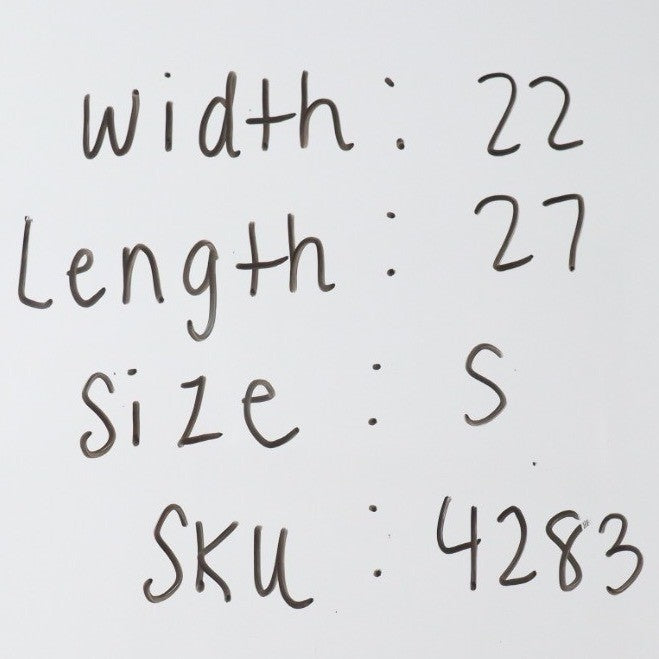 width: 22
Length: 27
Size: S
SKU: 4283